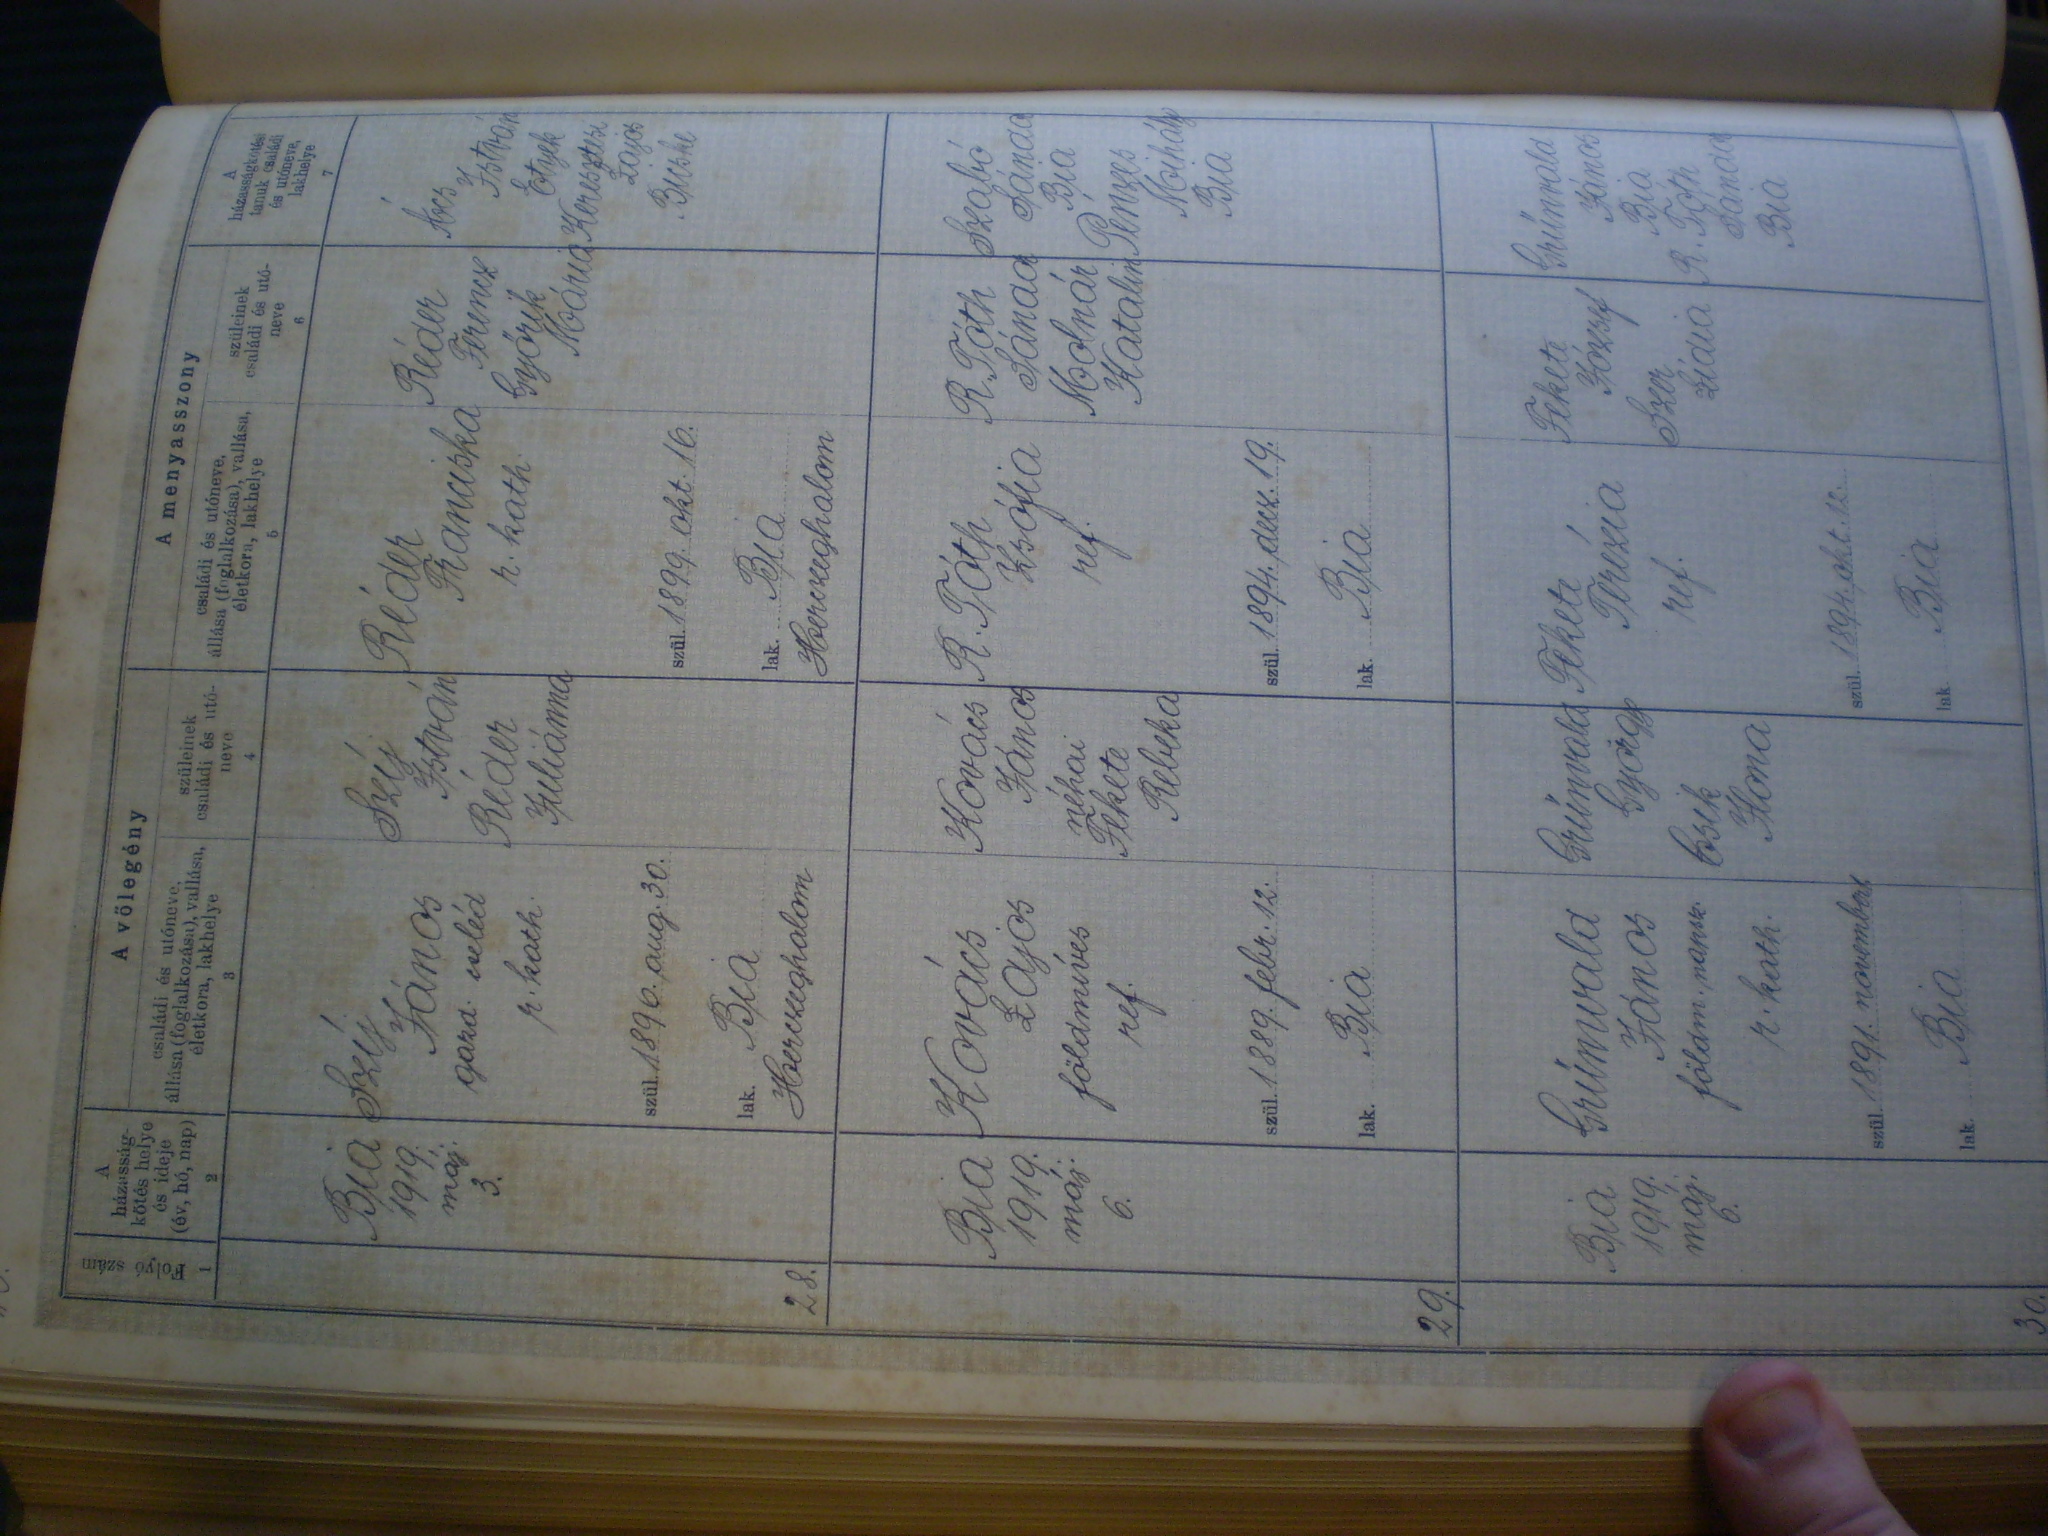 A vőlegény
A menyasszony
Folyó
szám
1
A
házasság-
kötés helye
és ideje
(év, hó, nap)
2
családi és utóneve,
állása (foglalkozása), vallása,
életkora, lakhelye
3
szüleinek
családi és utó-
neve
4
családi és utóneve,
állása (foglalkozása), vallása,
életkora, lakhelye
5
szüleinek
családi és utó-
neve
6
A
házasságkötési
tanuk családi
és utóneve,
lakhelye
7
28.
Bia
1919.
máj.
3.
Szíj
János
gazd. cseléd
r. kath.
szül. 1896. aug. 30.
lak. Bia
Herczeghalom
Szíj
István
Réder
Juliánna
Réder
Franciska
r. kath.
szül. 1899. okt. 16.
lak. Bia
Herczeghalom
Réder
Ferencz
Győrik
Mária
Ács
István
Etyek
Keresztesi
Lajos
Bicske
29.
Bia
1919.
máj.
6.
Kovács
Lajos
földmíves
ref.
szül. 1889. febr. 12.
lak. Bia
Kovács
János
néhai
Fekete
Rebeka
R. Tóth
Zsófia
ref.
szül. 1894. decz. 19.
lak. Bia
R. Tóth
Sándor
Molnár
Katalin
Szabó
Sándor
Bia
Pénzes
Mihály
Bia
30.
Bia
1919.
máj.
6.
Grünvald
János
földm. napsz.
r. kath.
szül. 1891. november
lak. Bia
Grünvald
György
Csik
Ilona
Fekete
Terézia
ref.
szül. 1894. okt. 12.
lak. Bia
Fekete
József
Szer
Lidia
Grünvald
János
Bia
R. Tóth
Sándor
Bia